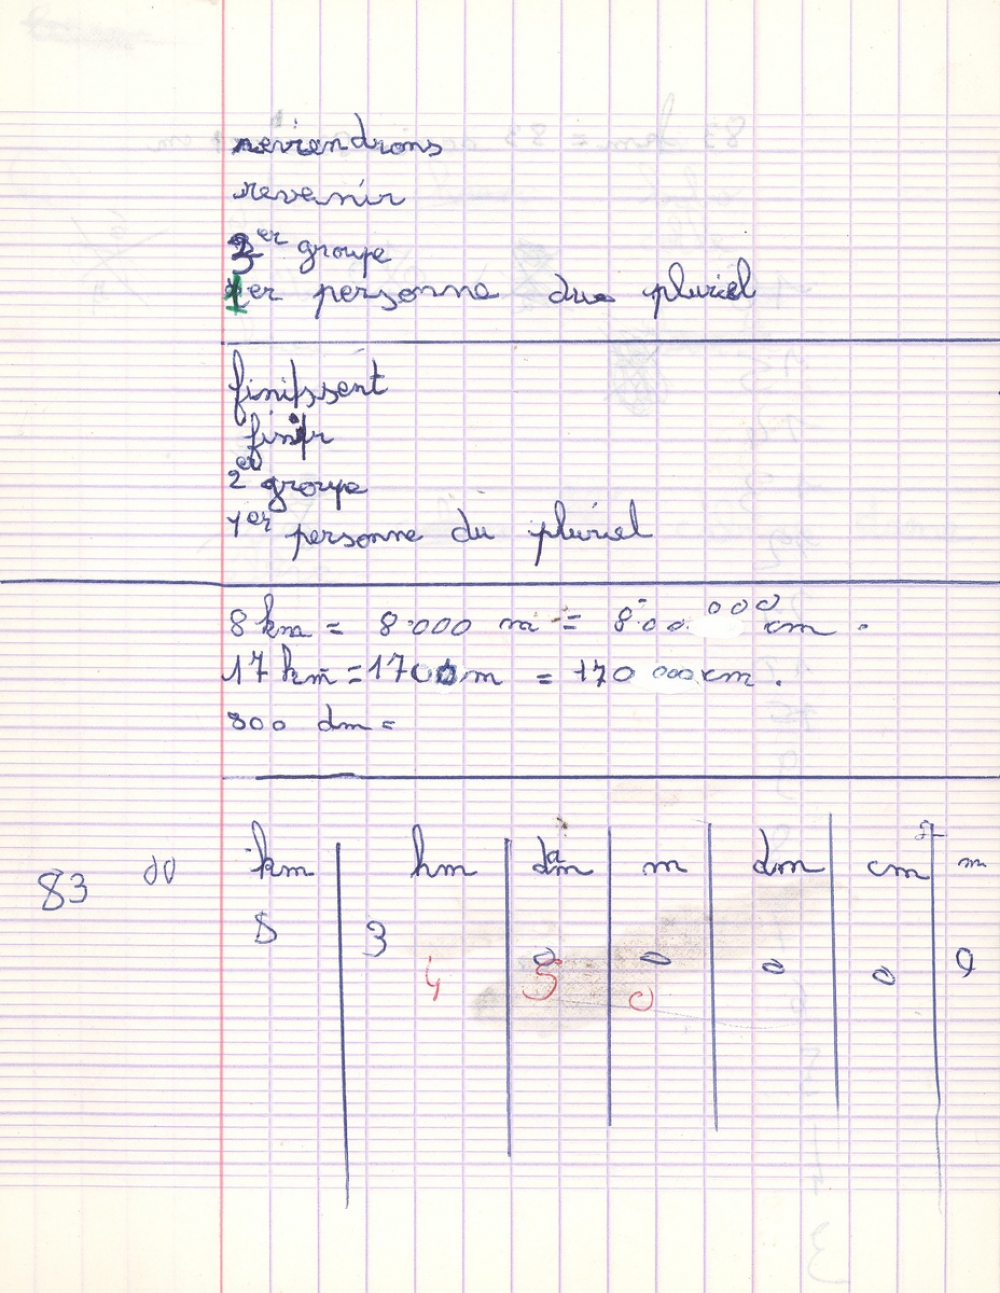 reviendrons
revenir
3er groupe
1er personne du pluriel
finissent
finir
2er groupe
1er personne du pluriel
8 km = 8 000 m = 800 000 cm.
17 km = 1700 m = 170 000 cm.
800 dm =
km hm dam m dm cm m
83 00
8 3 0 0 0 0 0
4 5 0